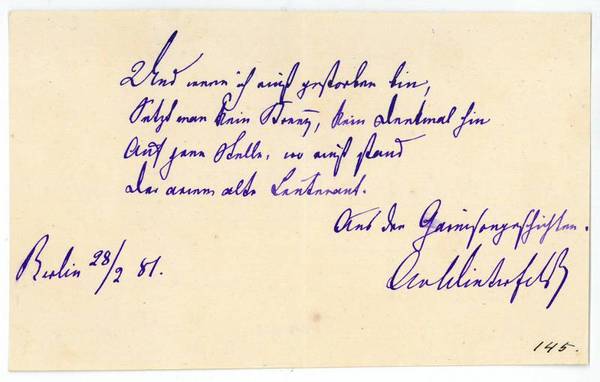 Und wenn ich einst gestorben bin,
Setzt man kein Kreuz, kein Denkmal hin
Auf jene Stelle, wo einst stand
Der arme alte Leutenant.
Aus den Garnisongeschichten.
Berlin 28/2 81.
AvWinterfeld
145.